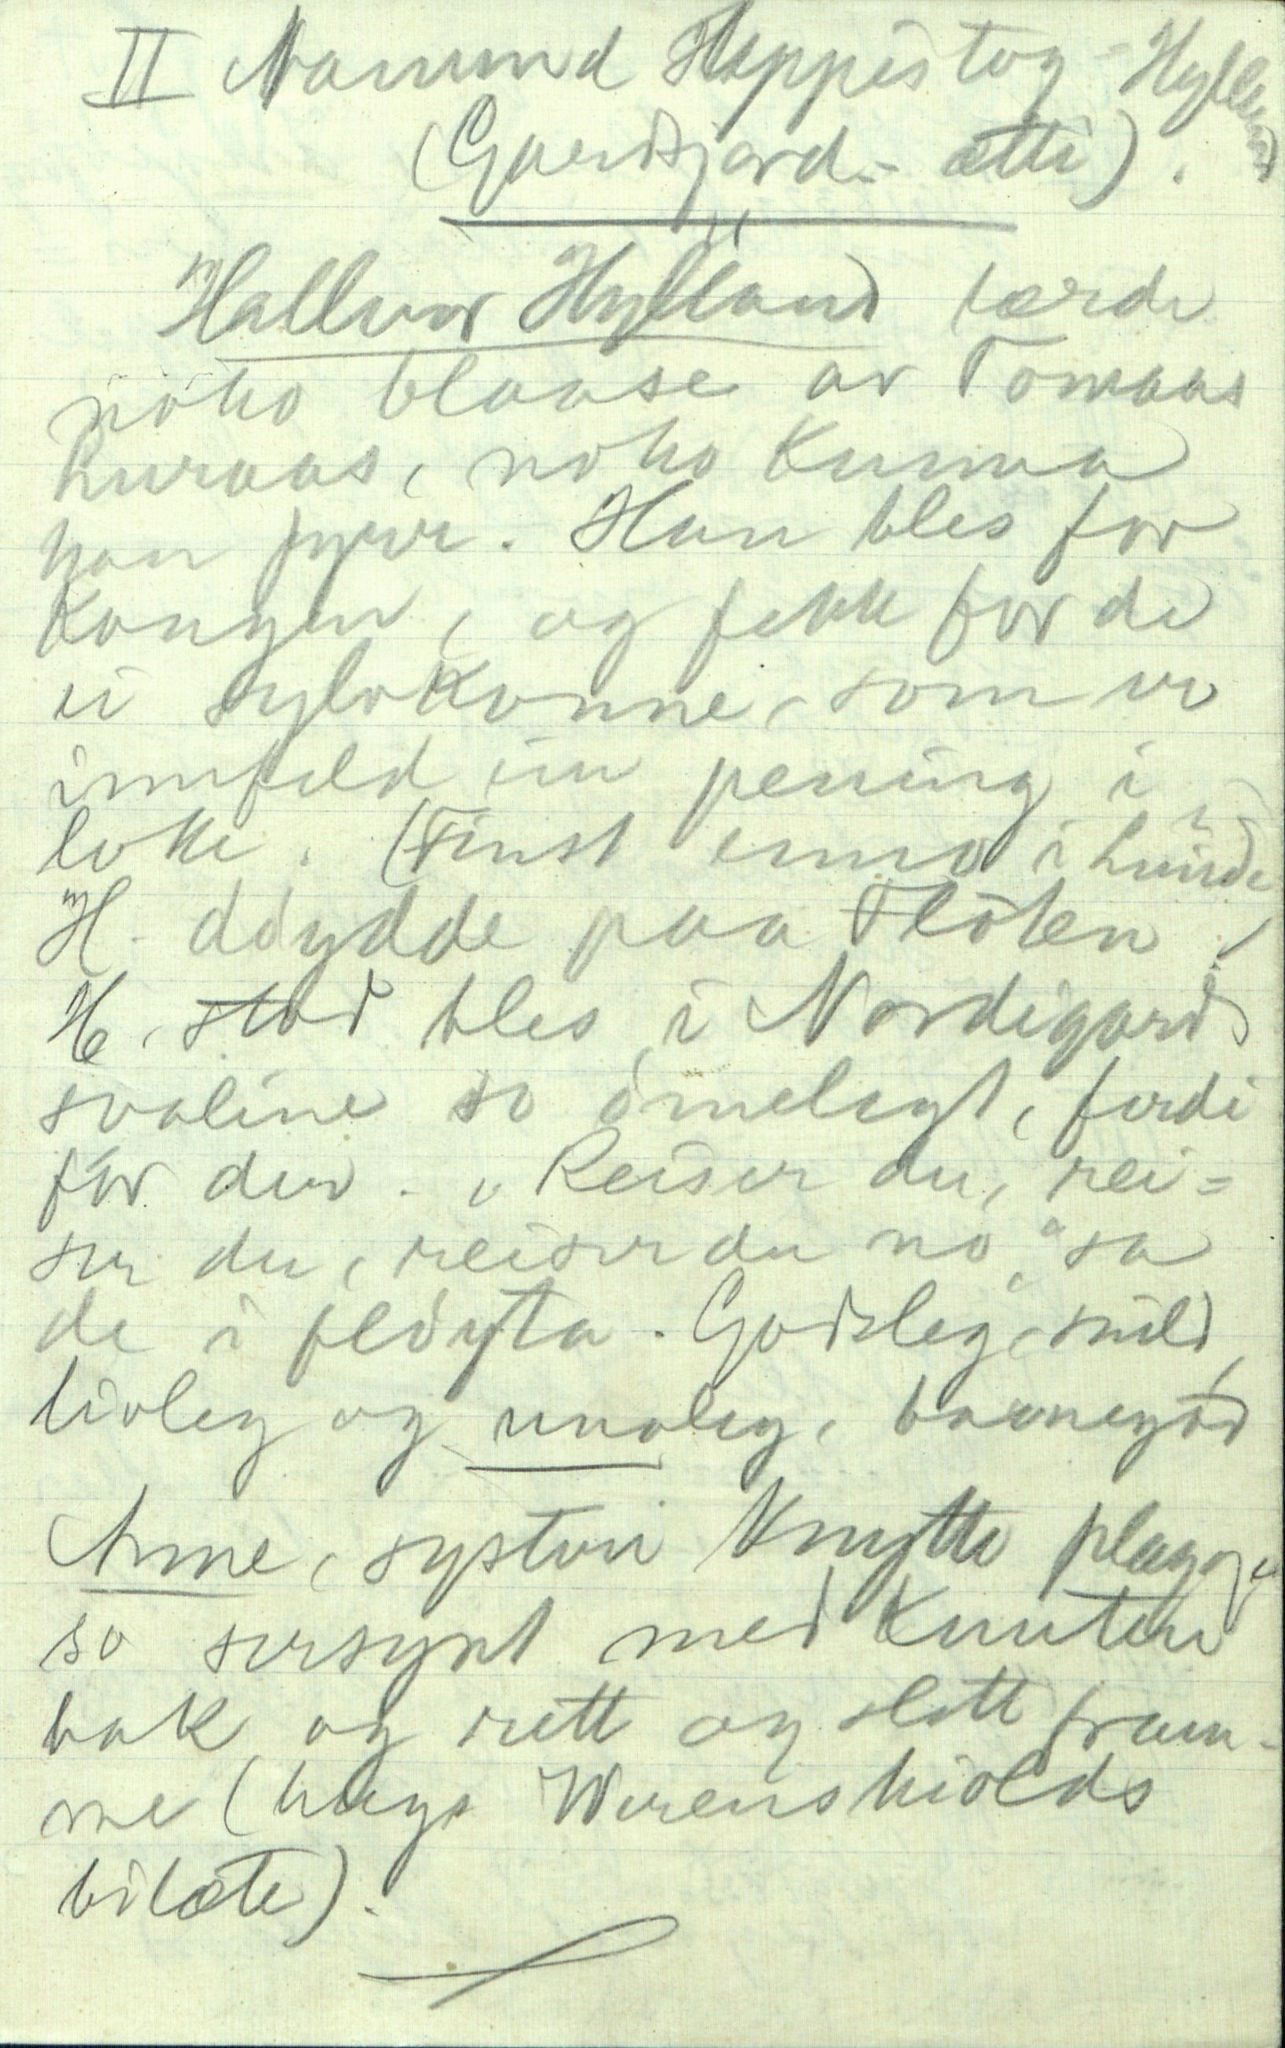 II Namnd Skeppistog-Hylland
(Gardsjord-ætti).
Hallvor Hylland lærde
nóko blaase av Tomaas
Luraas, noko kunna
han fyrr. Han bles for
Kongen, og fekk for de
ei sylvkanne, som va
innfeld ein pening i
loke. (Finst enno i Lunde
H. dóydde paa Flóten)
H. stod bles i Nordigard
svaline so ómelegt, ferdi
fór den. "Reiser du, rei-
ser du, reiser du no" sa
de i flóyta. Godsleg, snild,
livleg og unaleg, barnegód
Anne, systeri knytte plagg
so sersynt med knuten
bak og rett og slett fram-
me (hugs Werenskiolds
bilæte).